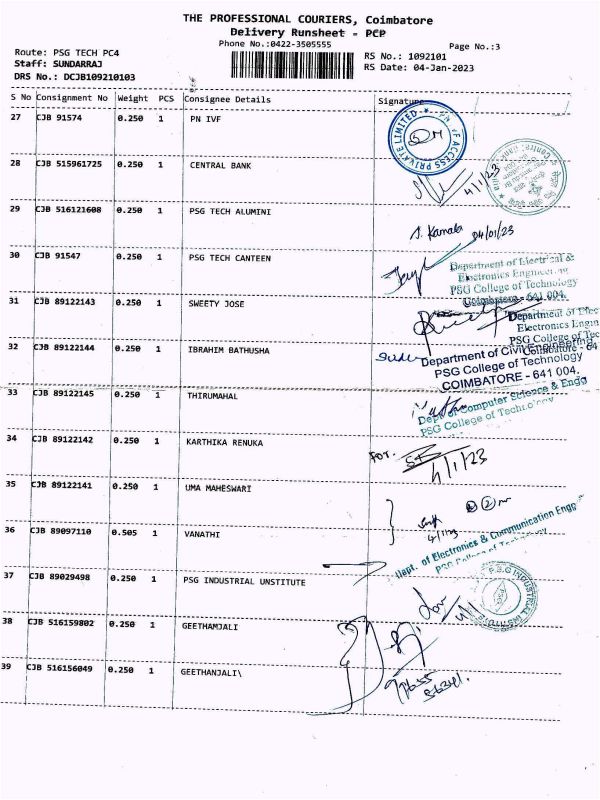 THE PROFESSIONAL COURIERS, Coimbatore
Delivery Runsheet - PCP
Phone No.:0422-3505555
Page No.:3
Route: PSG TECH PC4
Staff: SUNDARRAJ
DRS No.: DCJB109210103
RS No.: 1092101
RS Date: 04-Jan-2023
S No Consignment No Weight PCS Consignee Details Signature
27 CJB 91574 0.250 1 PN IVF
ACCESS PRIVATE LIMITED
28 CJB 515961725 0.250 1 CENTRAL BANK
4/1/23
29 CJB 516121608 0.250 1 PSG TECH ALUMINI
S. Kamala 04/01/23
30 CJB 91547 0.250 1 PSG TECH CANTEEN
Department of Electrical &
Electronics Engineering
PSG College of Technology
Coimbatore - 641 004.
31 CJB 89122143 0.250 1 SWEETY JOSE
Department of Elec
Electronics Engin
PSG College of Tec
Coimbatore - 64
32 CJB 89122144 0.250 1 IBRAHIM BATHUSHA
Department of Civil Engineering
PSG College of Technology
COIMBATORE - 641 004.
33 CJB 89122145 0.250 1 THIRUMAHAL
Dept. of Computer Science & Engg
PSG College of Technology
34 CJB 89122142 0.250 1 KARTHIKA RENUKA
For.
4/1/23
35 CJB 89122141 0.250 1 UMA MAHESWARI
36 CJB 89097110 0.505 1 VANATHI
4/1/23
Dept. of Electronics & Communication Engg
PSG College of Technology
37 CJB 89029498 0.250 1 PSG INDUSTRIAL UNSTITUTE
P.S.G INDUSTRIAL INSTITUTE
4/1
38 CJB 516159802 0.250 1 GEETHAMJALI
39 CJB 516156049 0.250 1 GEETHANJALI\